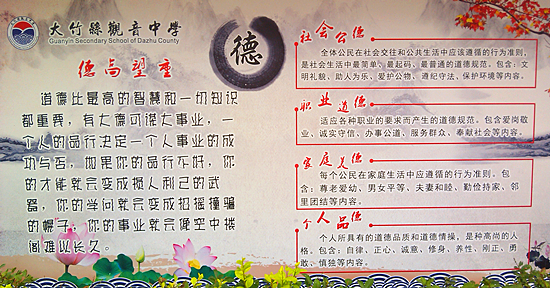 大竹縣觀音中學
Guanyin Secondary School of Dazhu County
德
德高望重
道德比最高的智慧和一切知识
都重要,有大德可谋大事业,一
个人的品行决定一个人事业的成
功与否,如果你的品行不好,你
的才能就会变成损人利己的武
器,你的学问就会变成招摇撞骗
的幌子,你的事业就会像空中楼
阁难以长久。
社会公德
全体公民在社会交往和公共生活中应该遵循的行为准则,
是社会生活中最简单、最起码、最普通的道德规范。包含:文
明礼貌、助人为乐、爱护公物、遵纪守法、保护环境等内容。
职业道德
适应各种职业的要求而产生的道德规范。包含爱岗敬
业、诚实守信、办事公道、服务群众、奉献社会等内容。
家庭美德
每个公民在家庭生活中应遵循的行为准则。包
含:尊老爱幼、男女平等、夫妻和睦、勤俭持家、邻
里团结等内容。
个人品德
个人所具有的道德品质和道德情操,是种高尚的人
格。包含:自律、正心、诚意、修身、养性、刚正、勇
敢、慎独等内容。